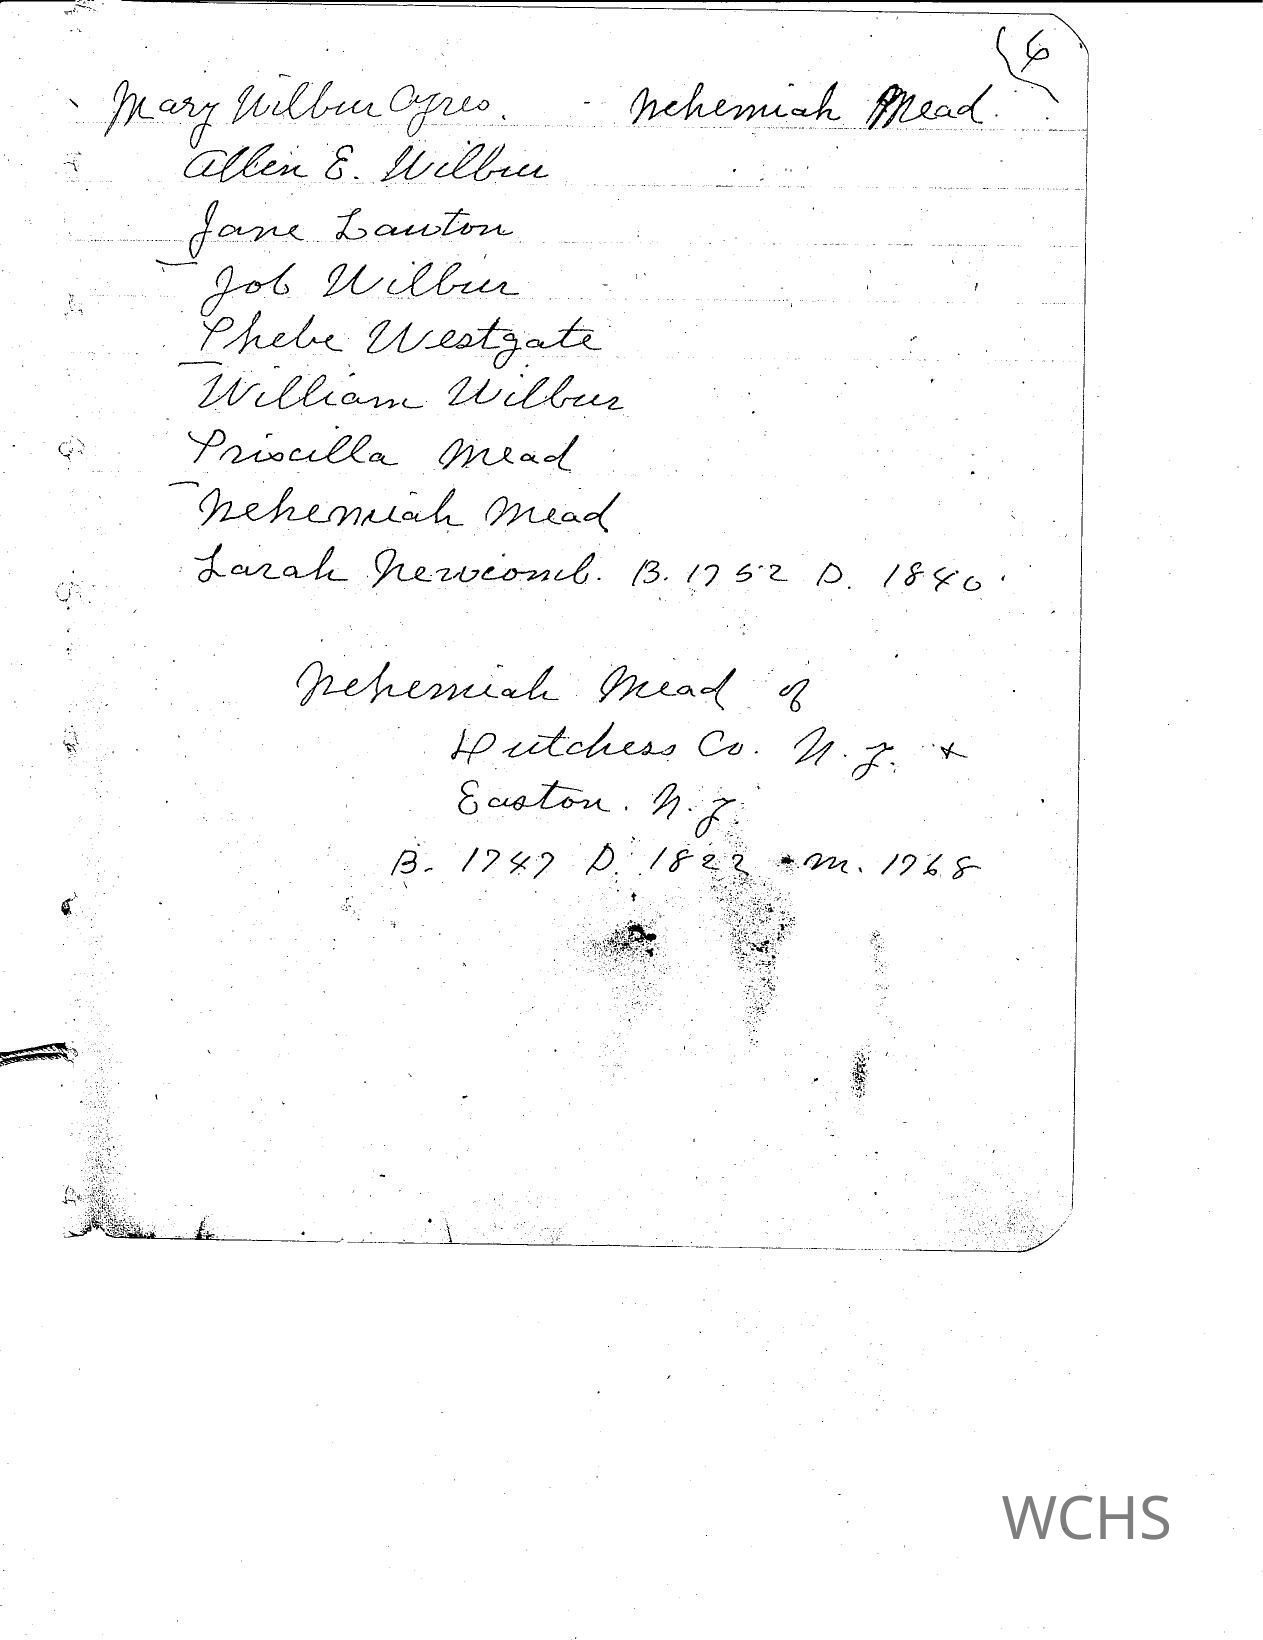 6
Mary Wilbur Ayres. - Nehemiah Mead.
Allen E. Wilbur
Jane Lawton
Job Wilbur
Phebe Westgate
William Wilbur
Priscilla Mead
Nehemiah Mead
Sarah Newcomb. B. 1752 D. 1840.
Nehemiah Mead of
Dutchess Co. N.Y. +
Easton. N.Y.
B. 1747 D. 1822 - M. 1768
WCHS